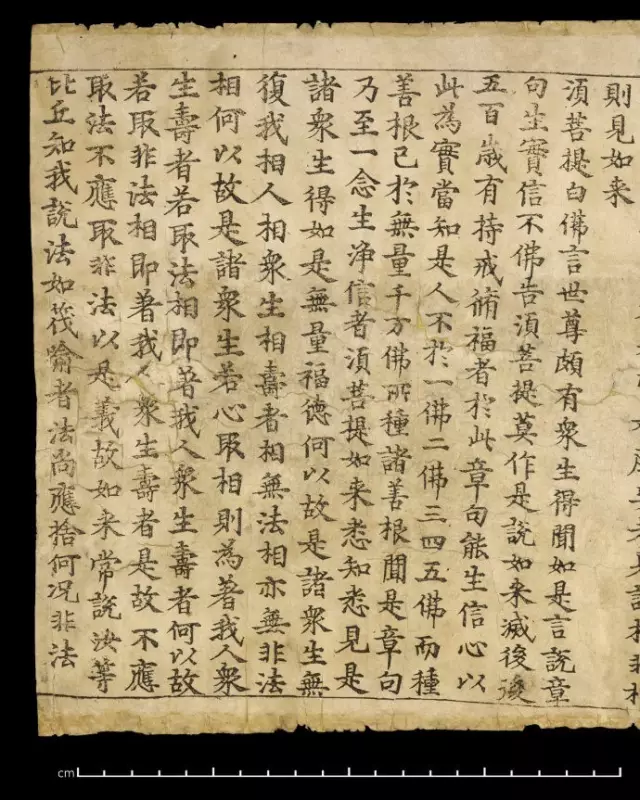 則見如来
湏菩提白佛言世尊頗有衆生得聞如是言說章
句生實信不佛告湏菩提莫作是說如来滅後後
五百歲有持戒脩福者於此章句能生信心以
此為實當知是人不於一佛二佛三四五佛而種
善根已於無量千万佛所種諸善根聞是章句
乃至一念生净信者湏菩提如来悉知悉見是
諸衆生得如是無量福德何以故是諸衆生無
復我相人相衆生相壽者相無法相亦無非法
相何以故是諸衆生若心取相則為著我人衆
生壽者若取法相即著我人衆生壽者何以故
若取非法相即著我人衆生壽者是故不應
取法不應取非法以是義故如来常說汝等
比丘知我說法如筏喻者法尚應捨何况非法
cm